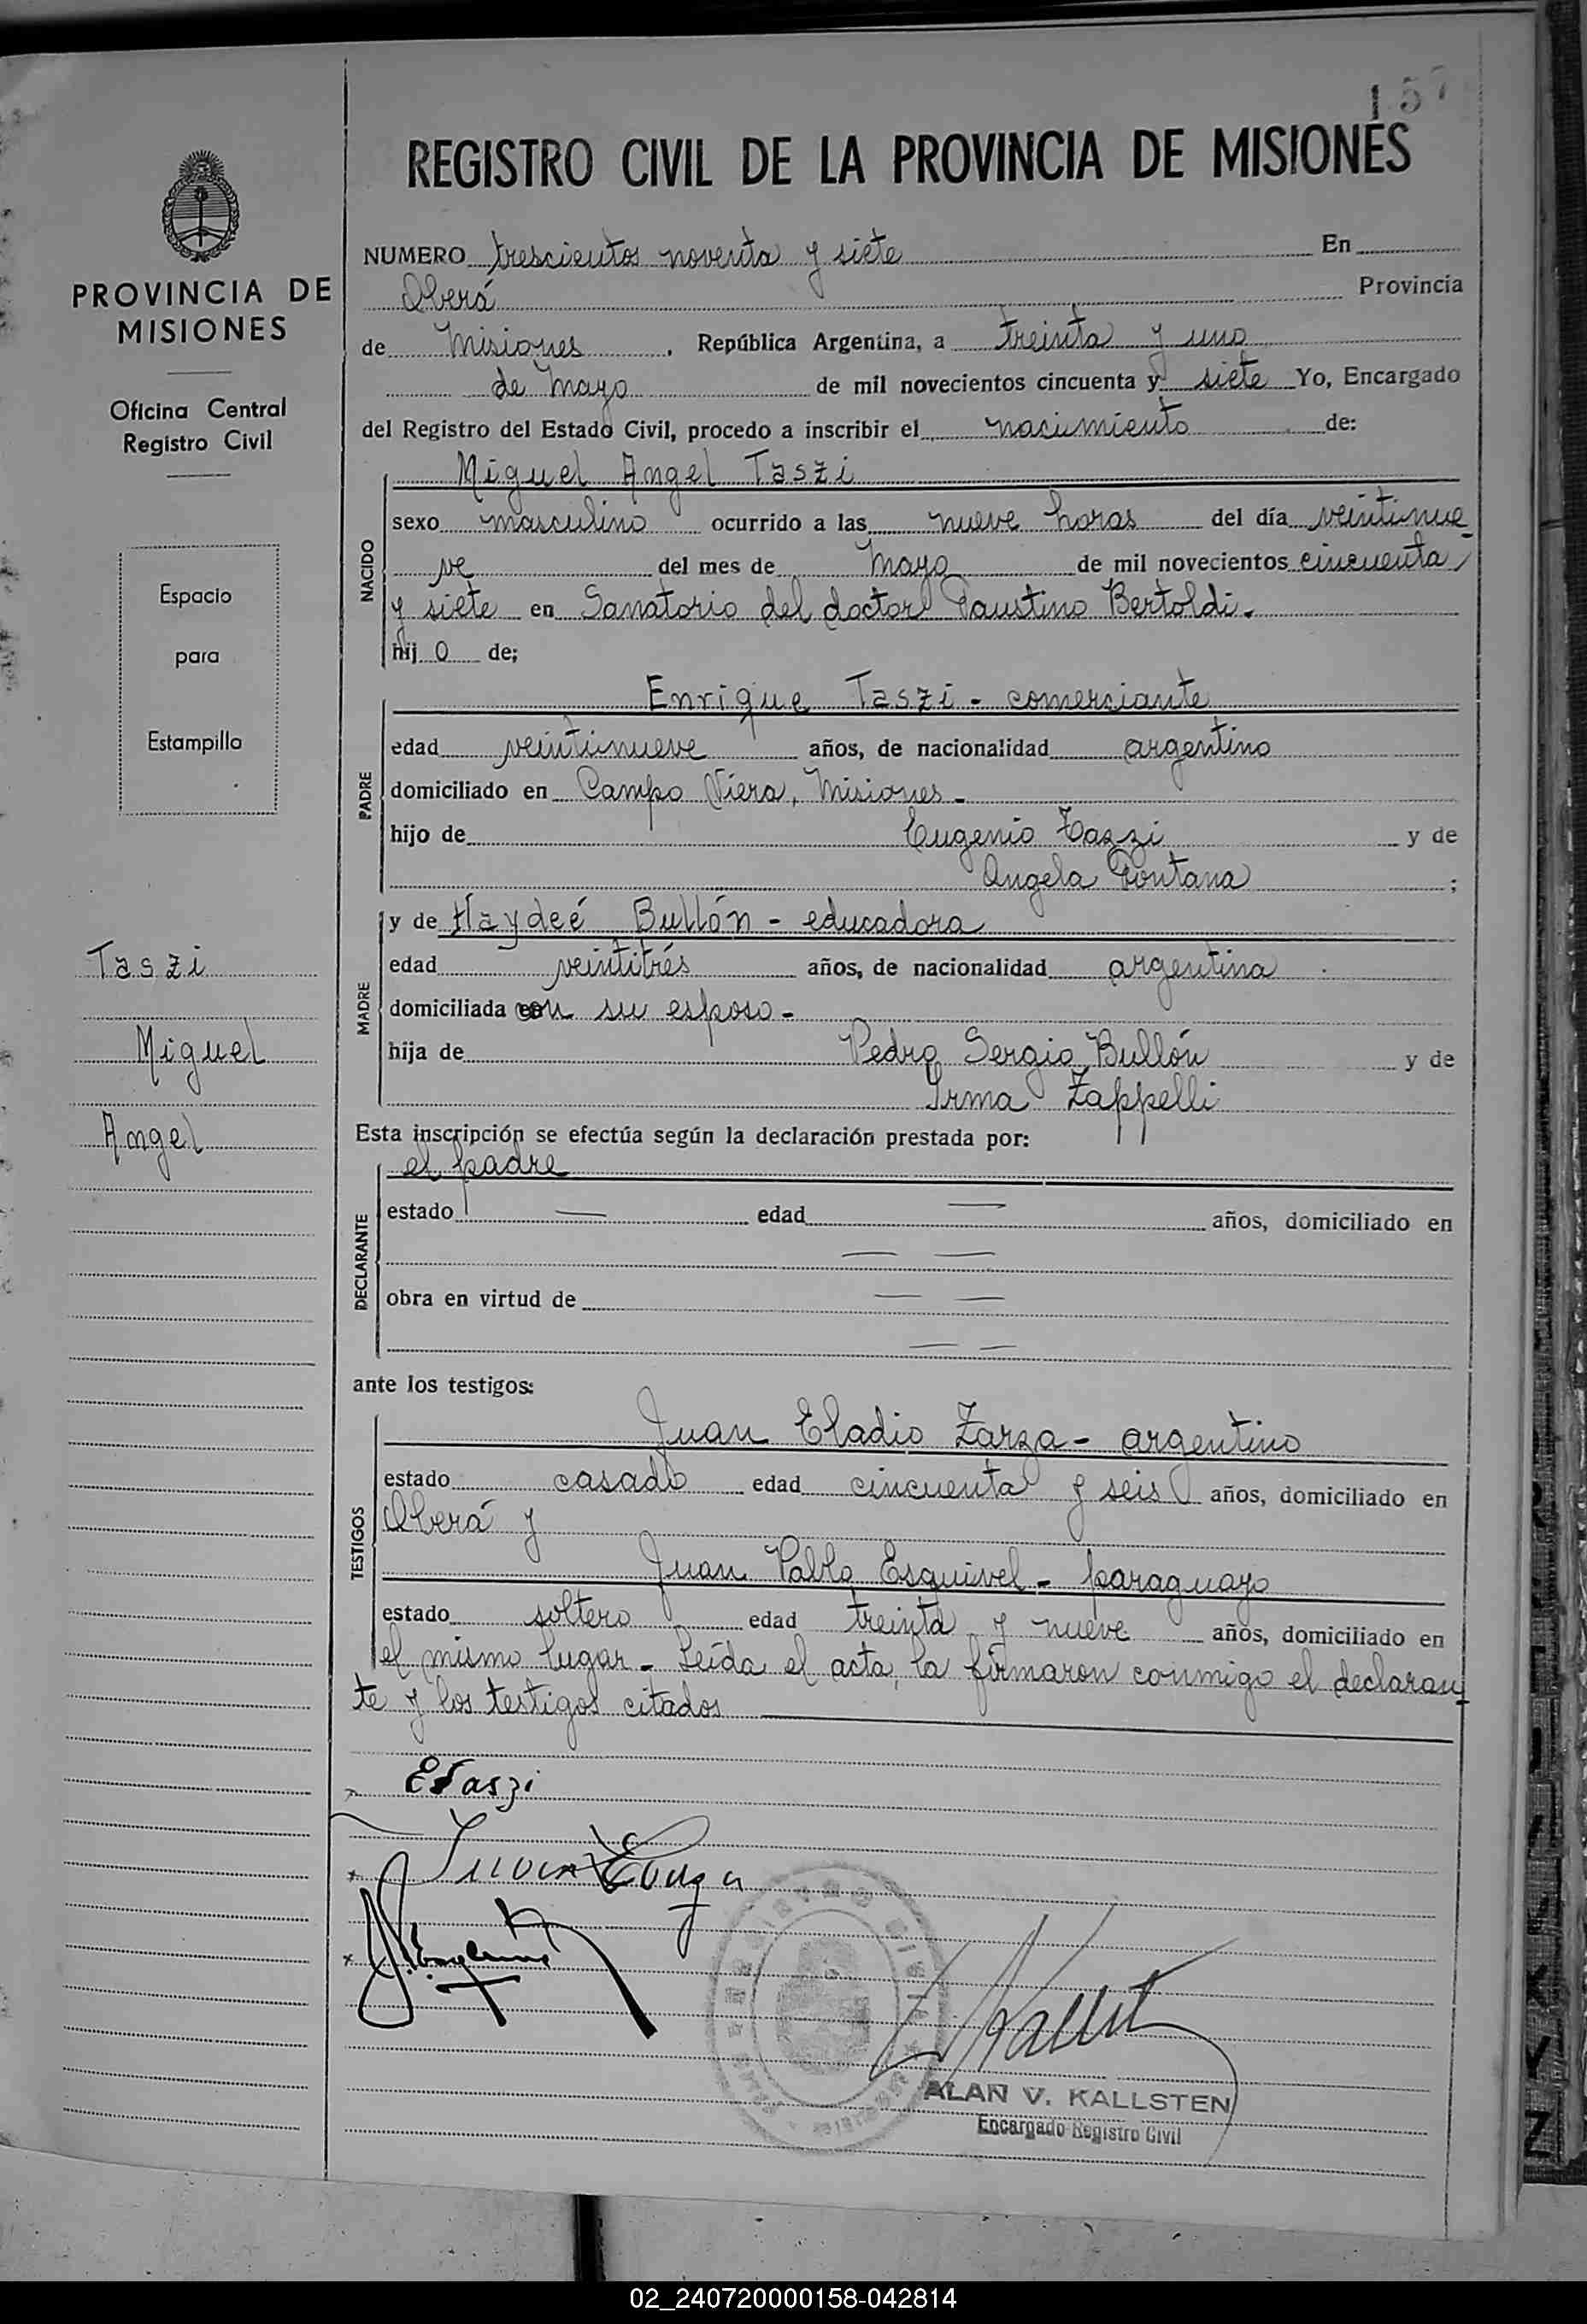 157
REGISTRO CIVIL DE LA PROVINCIA DE MISIONES
PROVINCIA DE
MISIONES
Oficina Central
Registro Civil
Espacio
para
Estampilla
Taszi
Miguel
Angel
NUMERO trescientos noventa y siete En
Oberá Provincia
de Misiones, República Argentina, a treinta y uno
de Mayo de mil novecientos cincuenta y siete Yo, Encargado
del Registro del Estado Civil, procedo a inscribir el nacimiento de:
NACIDO
Miguel Angel Taszi
sexo masculino ocurrido a las nueve horas del día veintinue-
ve del mes de Mayo de mil novecientos cincuenta
y siete en Sanatorio del doctor Faustino Bertoldi.
hijo de;
PADRE
Enrique Taszi - comerciante
edad veintinueve años, de nacionalidad argentino
domiciliado en Campo Viera, Misiones -
hijo de Eugenio Taszi y de
Angela Fontana ;
MADRE
y de Haydeé Bullón - educadora
edad veintitrés años, de nacionalidad argentina
domiciliada con su esposo -
hija de Pedro Sergio Bullón y de
Irma Zappelli
Esta inscripción se efectúa según la declaración prestada por:
DECLARANTE
el padre
estado — edad — años, domiciliado en
— —
obra en virtud de — —
— —
ante los testigos:
TESTIGOS
Juan Eladio Zarza - argentino
estado casado edad cincuenta y seis años, domiciliado en
Oberá y
Juan Pablo Esquivel - paraguayo
estado soltero edad treinta y nueve años, domiciliado en
el mismo lugar - Leída el acta, la firmaron conmigo el declaran-
te y los testigos citados
ETaszi
Kallst
ALAN V. KALLSTEN
Encargado Registro Civil
02_240720000158-042814